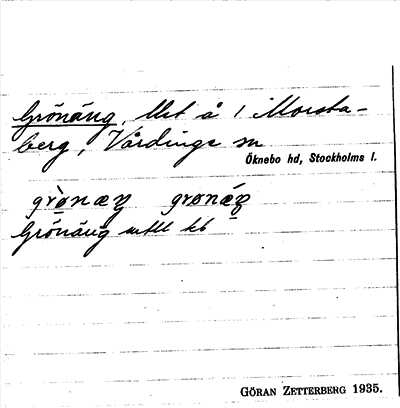 Grönäng, lht å 1 Morsta-
berg, Vårdinge sn
Öknebo hd, Stockholms l.
grònæŋ grønǽŋ
Grönäng utll kb
GÖRAN ZETTERBERG 1935.